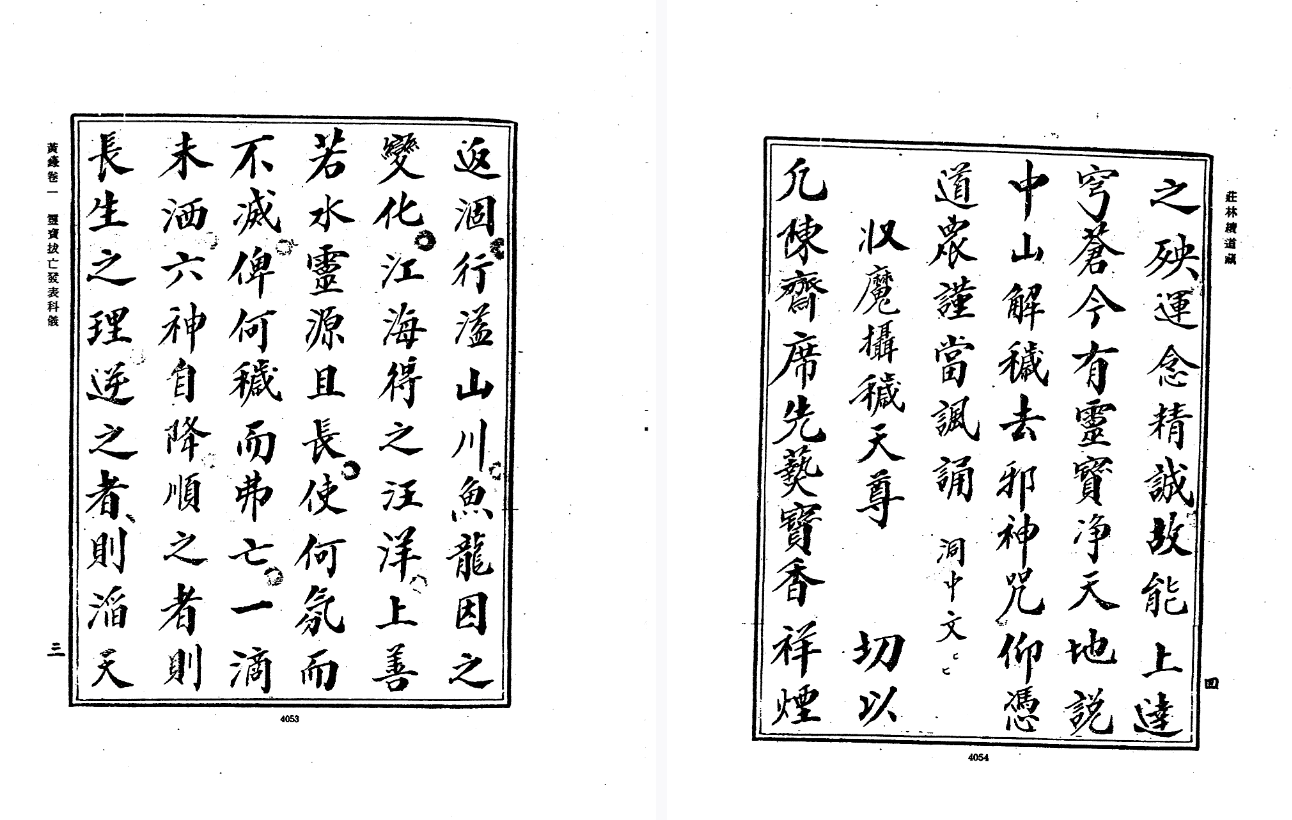 返涸行溢山川魚龍因之
變化江海得之汪洋上善
若水靈源且長使何氛而
不滅俾何穢而弗亡一滴
未洒六神自降順之者則
長生之理逆之者則滔天
黃籙卷一 靈寶拔亡發表科儀
三
4053
莊林續道藏
四
之殃運念精誠故能上達
穹蒼今有靈寶净天地説
中山解穢去邪神咒仰憑
道眾謹當諷誦 洞中文
收魔攝穢天尊 切以
凢陳齋席先爇寶香祥煙
4054